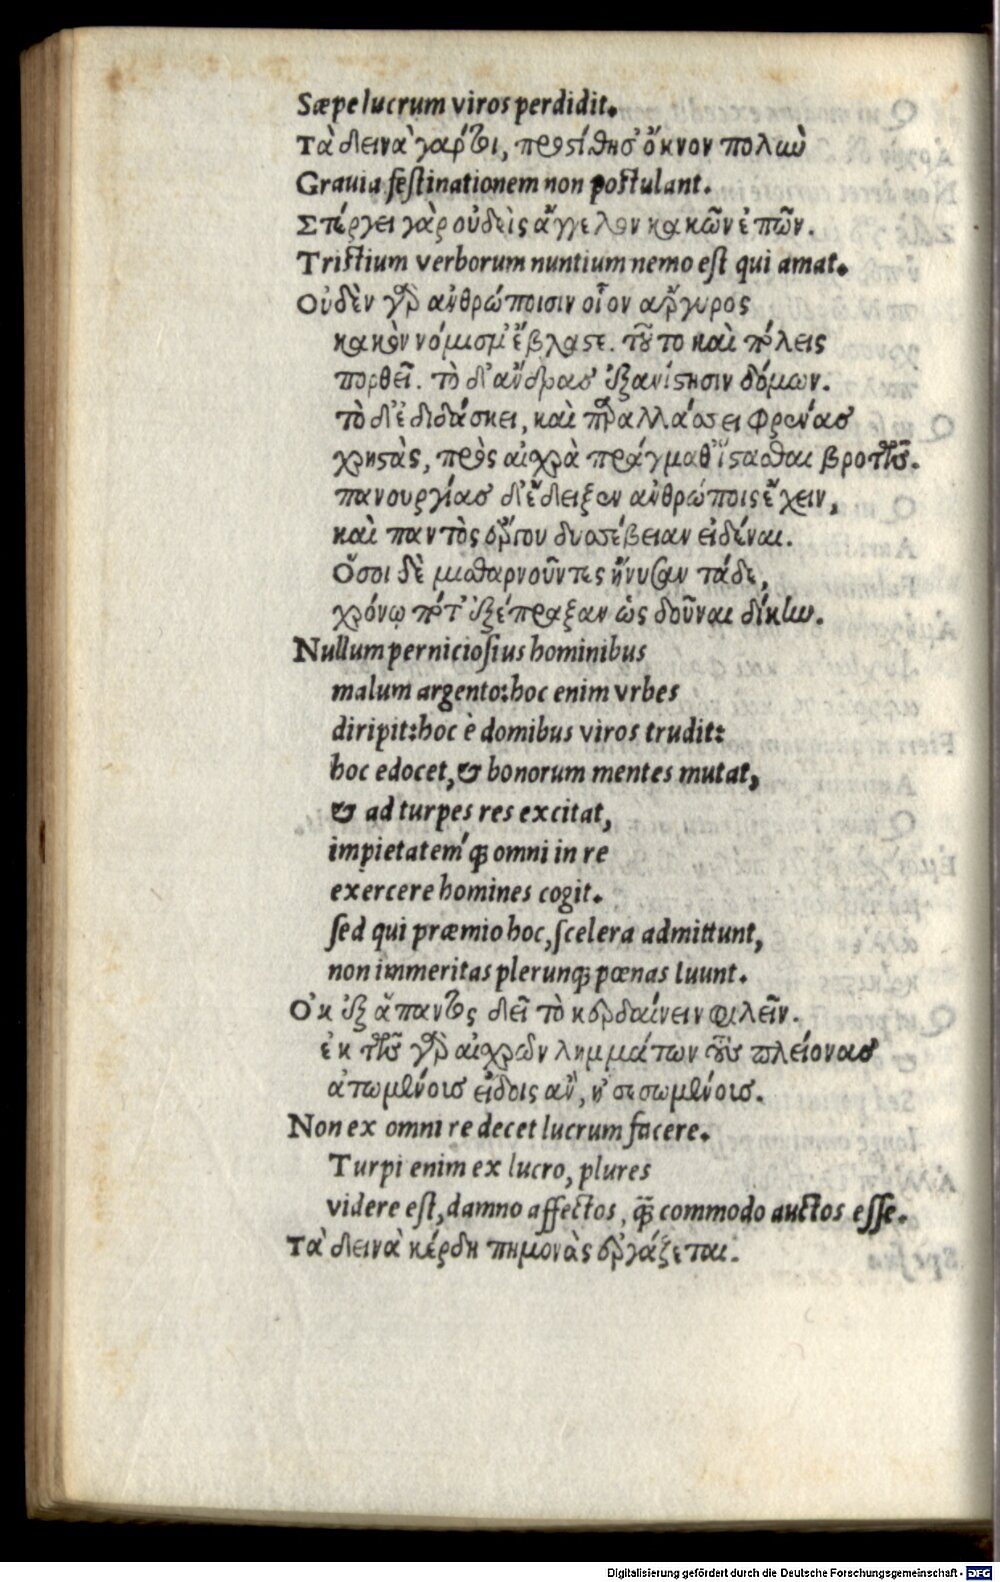 Sæpe lucrum viros perdidit.
Τὰ δεινὰ γάρ τοι, προστίθησ' ὄκνον πολιὼ
Grauia festinationem non postulant.
Στέργει γὰρ οὐδεὶς ἄγγελον κακῶν ἐπῶν.
Tristium verborum nuntium nemo est qui amat.
Οὐδὲν γὰρ ἀνθρώποισιν οἷον ἄργυρος
κακὸν νόμισμ' ἔβλαστε. τοῦτο καὶ πόλεις
πορθεῖ. τὸ δ' ἄνδρας ἐξανίστησιν δόμων.
τὸ δ' ἐδιδάσκει, καὶ παραλλάσσει φρένας
χρηστὰς, πρὸς αἰσχρὰ πράγμαθ' ἵστασθαι βροτῶν.
πανουργίας δ' ἔδειξεν ἀνθρώποις ἔχειν,
καὶ παντὸς ἔργου δυσσέβειαν εἰδέναι.
Ὅσοι δὲ μισθαρνοῦντες ἤνυσαν τάδε,
χρόνῳ πότ' ἐξέπραξαν ὡς δοῦναι δίκην.
Nullum perniciosius hominibus
malum argento: hoc enim vrbes
diripit: hoc è domibus viros trudit:
hoc edocet, & bonorum mentes mutat,
& ad turpes res excitat,
impietatemq́ꝫ omni in re
exercere homines cogit.
sed qui præmio hoc, scelera admittunt,
non immeritas plerunqꝫ pœnas luunt.
Οὐκ ἐξ ἅπαντος δεῖ τὸ κερδαίνειν φιλεῖν.
ἐκ τῶν γὰρ αἰσχρῶν λημμάτων τοὺς πλείονας
ἀτωμένους εἴδοις ἄν, ἢ σεσωμένους.
Non ex omni re decet lucrum facere.
Turpi enim ex lucro, plures
videre est, damno affectos, q̃ꝫ commodo auctos esse.
Τὰ δεινὰ κέρδη πημονὰς ἐργάζεται.
Digitalisierung gefördert durch die Deutsche Forschungsgemeinschaft - DFG